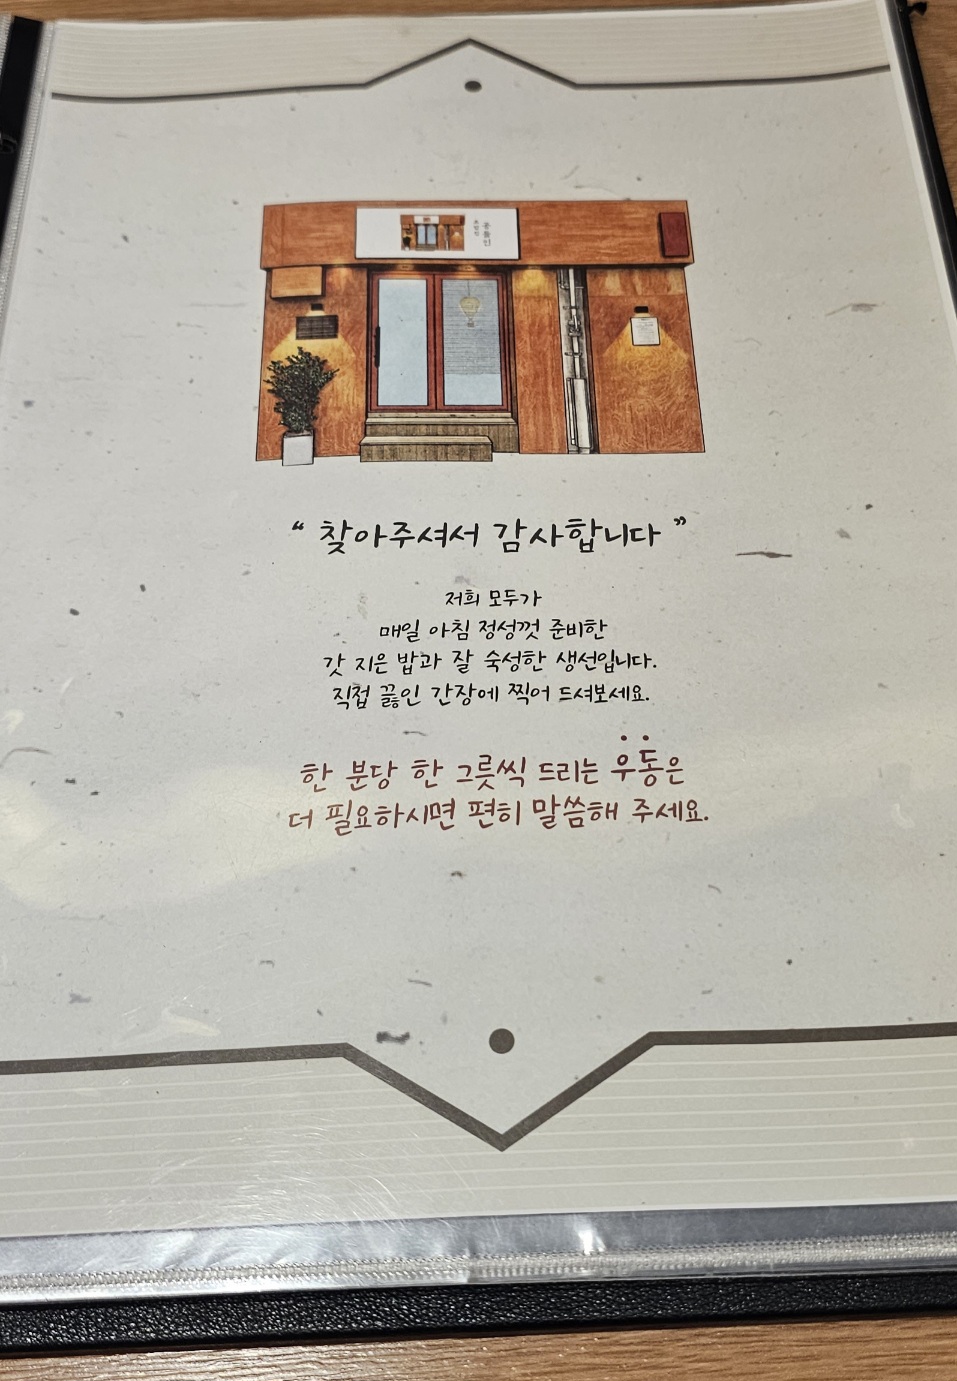 “ 찾아주셔서 감사합니다 ”
저희 모두가
매일 아침 정성껏 준비한
갓 지은 밥과 잘 숙성한 생선입니다.
직접 끓인 간장에 찍어 드셔보세요.
한 분당 한 그릇씩 드리는 우동은
더 필요하시면 편히 말씀해 주세요.